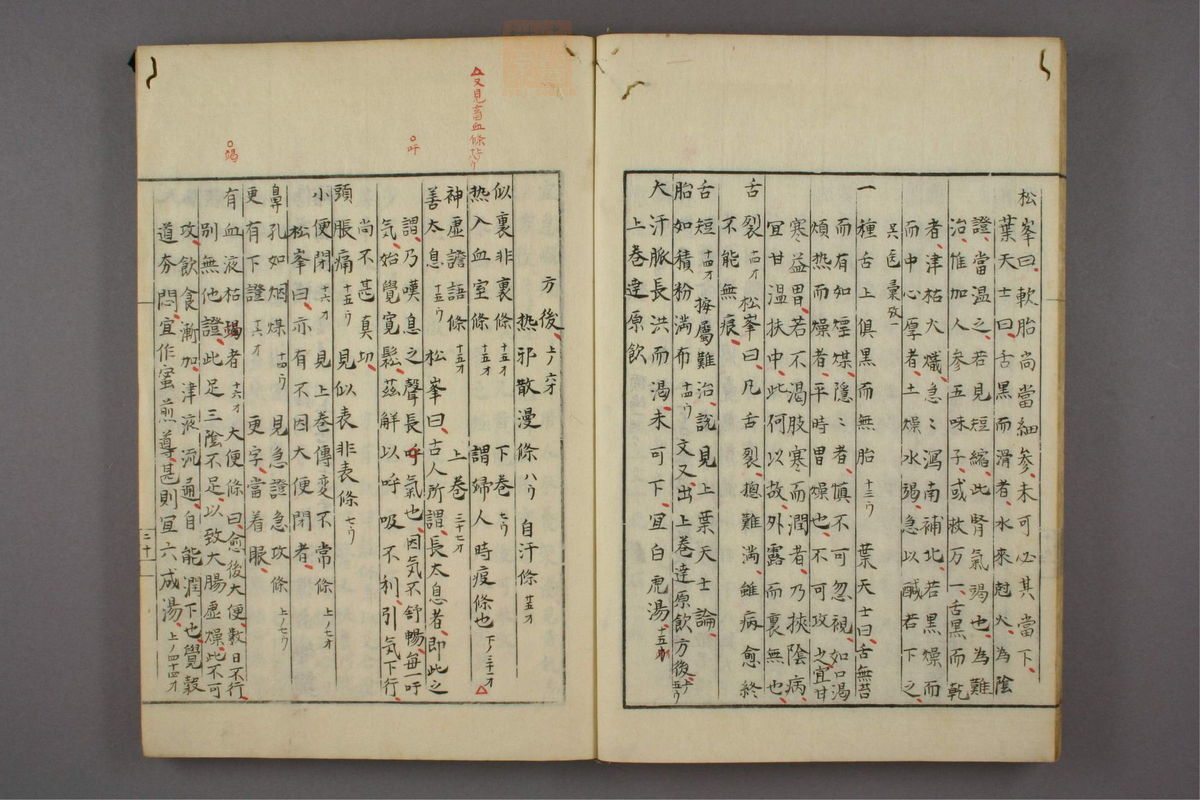 松峯曰、軟胎尚當細參、未可必其當下、
葉天士曰、舌黑而滑者、水來尅火、為陰
證、當溫之、若見短縮、此腎氣竭也、為難
治、惟加人參五味子、或救万一、舌黑而乾
者、津枯火熾、急〻瀉南補北、若黑燥而
而中心厚者、土燥水竭、急以鹹苦下之、
一種舌上俱黑而無胎 十三ウ 葉天士曰、舌無苔
而有如煙煤、隱〻者、慎不可忽視、如口渴
煩热而燥者、平時胃燥也、不可攻之、宜甘
寒益胃、若不渴肢寒而潤者、乃挾陰病、
宜甘溫扶中、此何以故、外露而裏無也、
舌裂 十四オ 松峯曰、凡舌裂、摠難満、雖病愈終
不能無痕、
舌短 十四オ 按屬難治、說見上葉天士論、
胎如積粉満布 十四ウ 文又出上巻達原飲方後、
大汗脈長洪而渴、未可下、宜白虎湯、十五オ
上巻達原飲
方後、上ノ六オ 热邪散漫條 八ウ 自汗條 廿五オ
似裏非裏條 十五オ 下巻 七ウ
热入血室條 十五オ 謂婦人時疫條也 下ノ三十オ △
△又見畜血條
神虛譫語條 十五オ 上巻 三十七オ
善太息 十五ウ 松峯曰、古人所謂、長太息者、即此之
謂、乃嘆息之聲長呼氣也、因気不舒暢、每一吁
気、始覺寬鬆、茲解以呼吸不利、引気下行、
○吁
尚不甚真切、
頭脹痛 十五ウ 見似表非表條 七ウ
小便閉 十六オ 見上巻傳変不常條 上ノ七オ
松峯曰、亦有不因大便閉者、
鼻孔如烟煤 十四ウ 見急證急攻條 上ノ七ウ
更有下證 更字當着眼、
有血液枯竭者 十六オ 大便條曰、愈後大便数日不行、
○竭
別無他證、此足三陰不足、以致大腸虛燥、此不可
攻、飲食漸加、津液流通、自能潤下也、覺穀
道夯悶、宜作蜜煎導、甚則宜六成湯 上ノ四十四オ
三十一